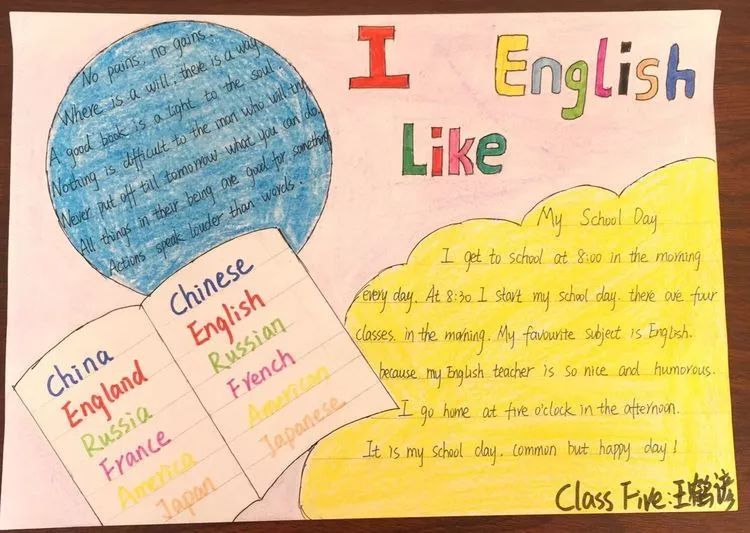 I
English
Like
No pains, no gains.
Where is a will, there is a way.
A good book is a light to the soul.
Nothing is difficult to the man who will try
Never put off till tomorrow what you can do.
All things in their being are good for something
Actions speak louder than words.
China
England
Russia
France
America
Japan
Chinese
English
Russian
French
American
Japanese
My School Day
I get to school at 8:00 in the morning
every day. At 8:30 I start my school day. there are four
classes. in the morning. My favourite subject is English.
because my English teacher is so nice and humorous.
I go home at five o'clock in the afternoon.
It is my school day. common but happy day!
Class Five:王鹤